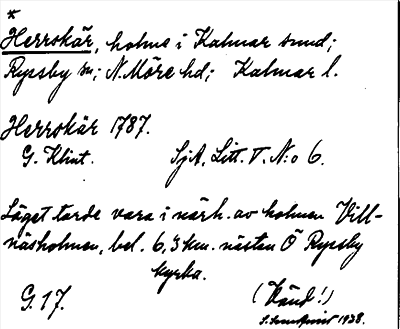 *
Herrskär, holme i Kalmar sund;
Ryssby sn; N. Möre hd; Kalmar l.
Herrskär 1787.
G. Klint. SjA, Litt. V. N:o 6.
Läget torde vara i närh. av holmen Vill-
näsholmen, bel. 6,3 km. nästan Ö Ryssby
kyrka.
G. 17. (Känd!)
1938.